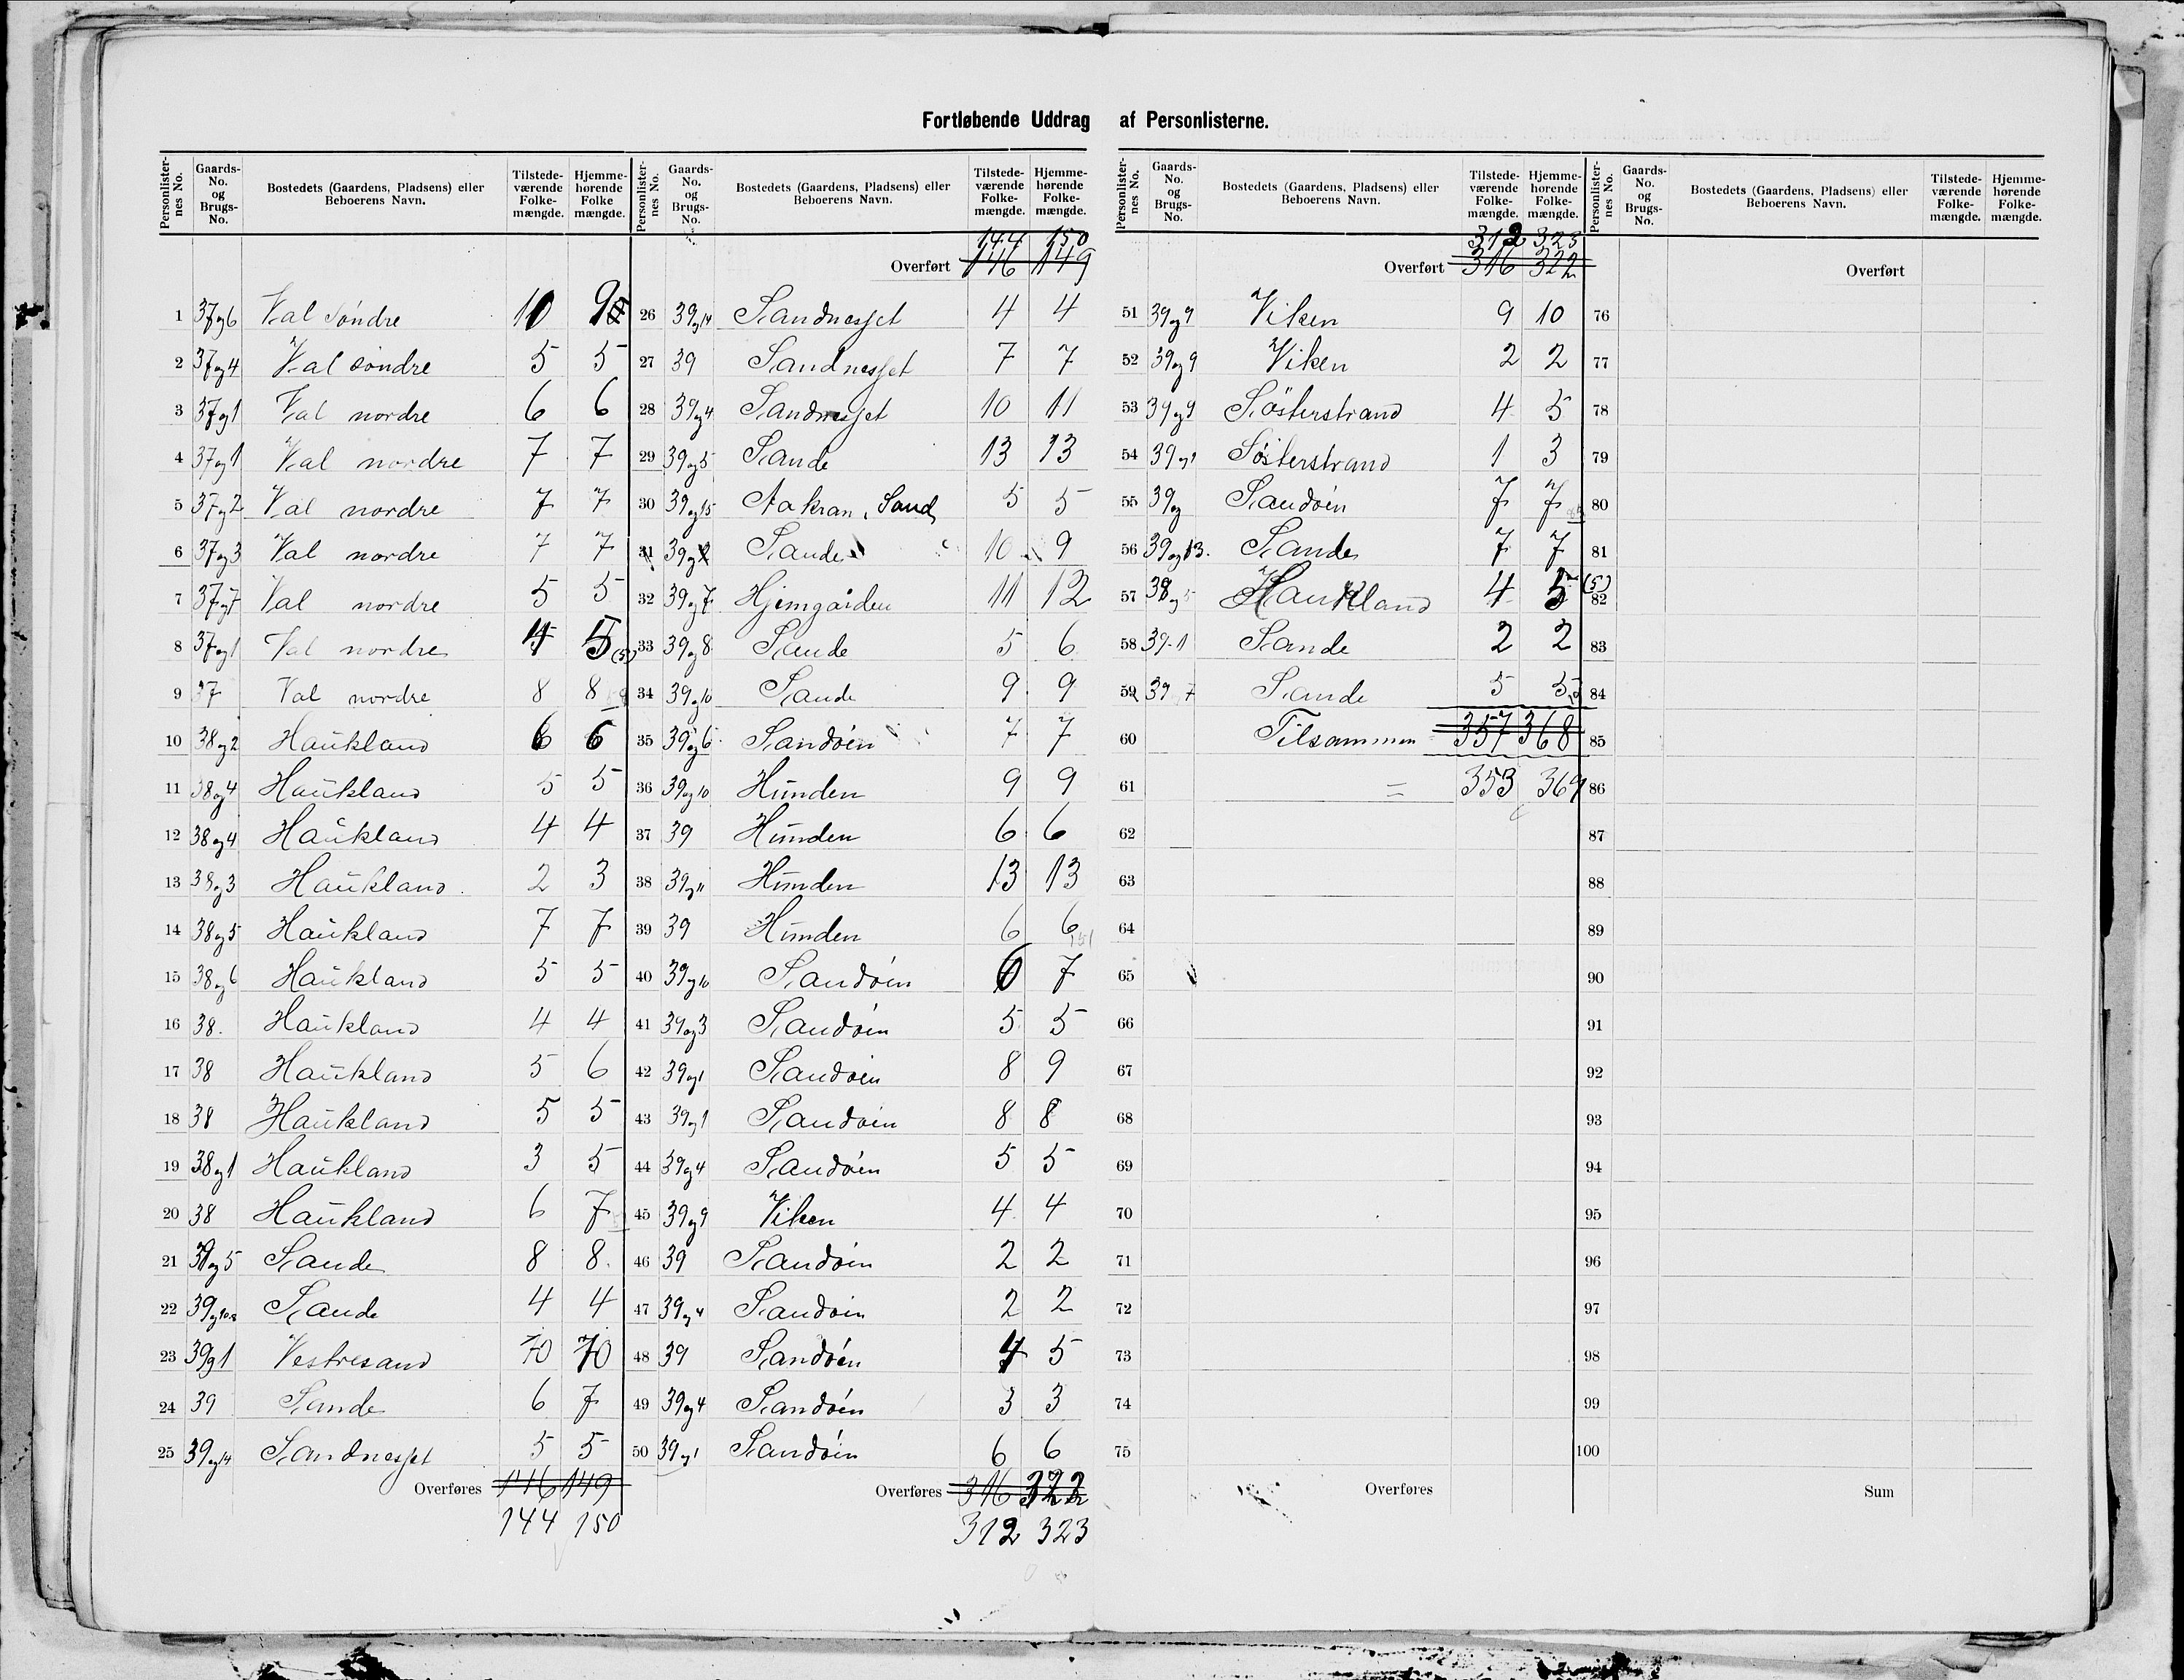 Fortløbende Uddrag af Personlisterne.
Personlisternes No. Gaards-No. og Brugs-No. Bostedets (Gaardens, Pladsens) eller Beboerens Navn. Tilstedeværende Folkemængde. Hjemmehørende Folkemængde.
1 37og6 Val Söndre 10 9
2 37og4 Val söndre 5 5
3 37og1 Val nordre 6 6
4 37og1 Val nordre 7 7
5 37og2 Val nordre 7 7
6 37og3 Val nordre 7 7
7 37og7 Val nordre 5 5
8 37og1 Val nordre 4 5 (5)
9 37 Val nordre 8 8
10 38og2 Haukland 6 6
11 38og4 Haukland 5 5
12 38og4 Haukland 4 4
13 38og3 Haukland 2 3
14 38og5 Haukland 7 7
15 38og6 Haukland 5 5
16 38. Haukland 4 4
17 38 Haukland 5 6
18 38 Haukland 5 5
19 38og1 Haukland 3 5
20 38 Haukland 6 7
21 39og5 Sande 8 8
22 39og Sande 4 4
23 39og1 Vestresand 10 10
24 39 Sande 6 7
25 39og14 Sandnesset 5 5
Overføres 146 149
144 150
Personlisternes No. Gaards-No. og Brugs-No. Bostedets (Gaardens, Pladsens) eller Beboerens Navn. Tilstedeværende Folkemængde. Hjemmehørende Folkemængde.
144 150
Overført 146 149
26 39og14 Sandnesset 4 4
27 39 Sandnesset 7 7
28 39og4 Sandnesset 10 11
29 39og5 Sande 13 13
30 39og15 Aakran, Sand 5 5
31 39og2 Sande 10 9
32 39og7 Hjemgaiden 11 12
33 39og8 Sande 5 6
34 39og10 Sande 9 9
35 39og6 Sandöen 7 7
36 39og10 Hunden 9 9
37 39 Hunden 6 6
38 39og11 Hunden 13 13
39 39 Hunden 6 6
40 39og10 Sandöen 6 7
41 39og3 Sandöen 5 5
42 39og1 Sandöen 8 9
43 39og1 Sandöen 8 8
44 39og4 Sandöen 5 5
45 39og9 Viken 4 4
46 39 Sandöen 2 2
47 39og4 Sandöen 2 2
48 39 Sandöen 4 5
49 39og4 Sandöen 3 3
50 39og1 Sandöen 6 6
Overføres 316 322
312 323
Personlisternes No. Gaards-No. og Brugs-No. Bostedets (Gaardens, Pladsens) eller Beboerens Navn. Tilstedeværende Folkemængde. Hjemmehørende Folkemængde.
312 323
Overført 316 322
51 39og9 Viken 9 10
52 39og9 Viken 2 2
53 39og9 Sösterstrand 4 5
54 39og9 Sösterstrand 1 3
55 39og Sandöen 7 7
56 39og13. Sande 7 7
57 38og5 Haukland 4 5 (5)
58 39-1 Sande 2 2
59 39 7 Sande 5 5
60 Tilsammen 357 368
61 = 353 369
62
63
64
65
66
67
68
69
70
71
72
73
74
75
Overføres
Personlisternes No. Gaards-No. og Brugs-No. Bostedets (Gaardens, Pladsens) eller Beboerens Navn. Tilstedeværende Folkemængde. Hjemmehørende Folkemængde.
Overført
76
77
78
79
80
81
82
83
84
85
86
87
88
89
90
91
92
93
94
95
96
97
98
99
100
Sum